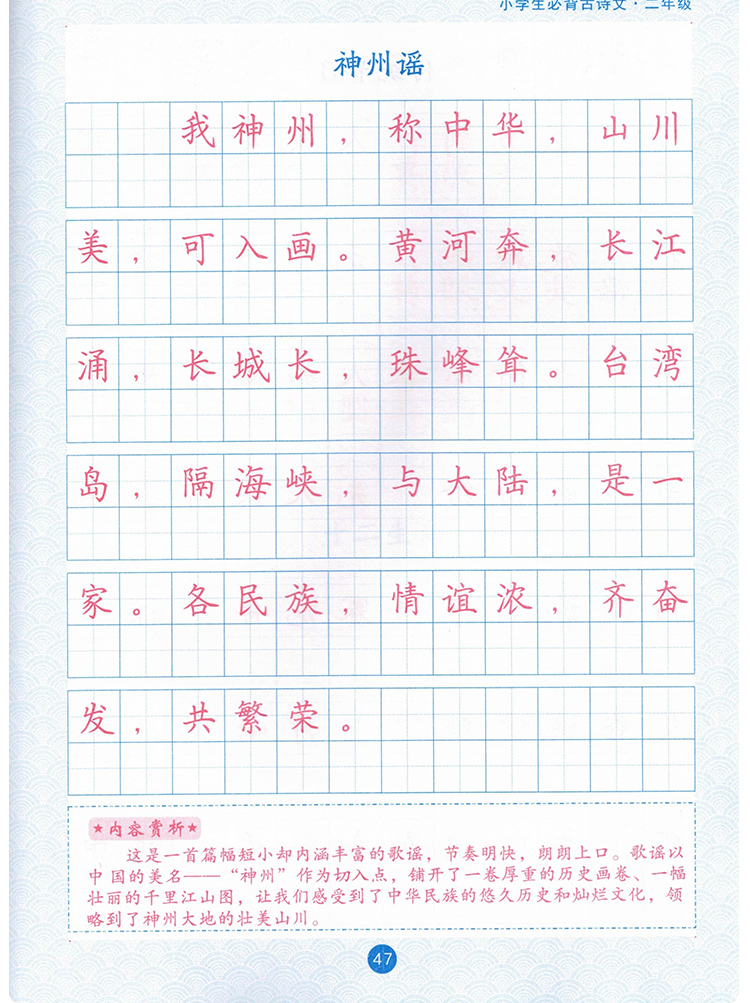 小学生必背古诗文·二年级
神州谣
我神州，称中华，山川
美，可入画。黄河奔，长江
涌，长城长，珠峰耸。台湾
岛，隔海峡，与大陆，是一
家。各民族，情谊浓，齐奋
发，共繁荣。
★内容赏析★
这是一首篇幅短小却内涵丰富的歌谣，节奏明快，朗朗上口。歌谣以
中国的美名——“神州”作为切入点，铺开了一卷厚重的历史画卷、一幅
壮丽的千里江山图，让我们感受到了中华民族的悠久历史和灿烂文化，领
略到了神州大地的壮美山川。
47